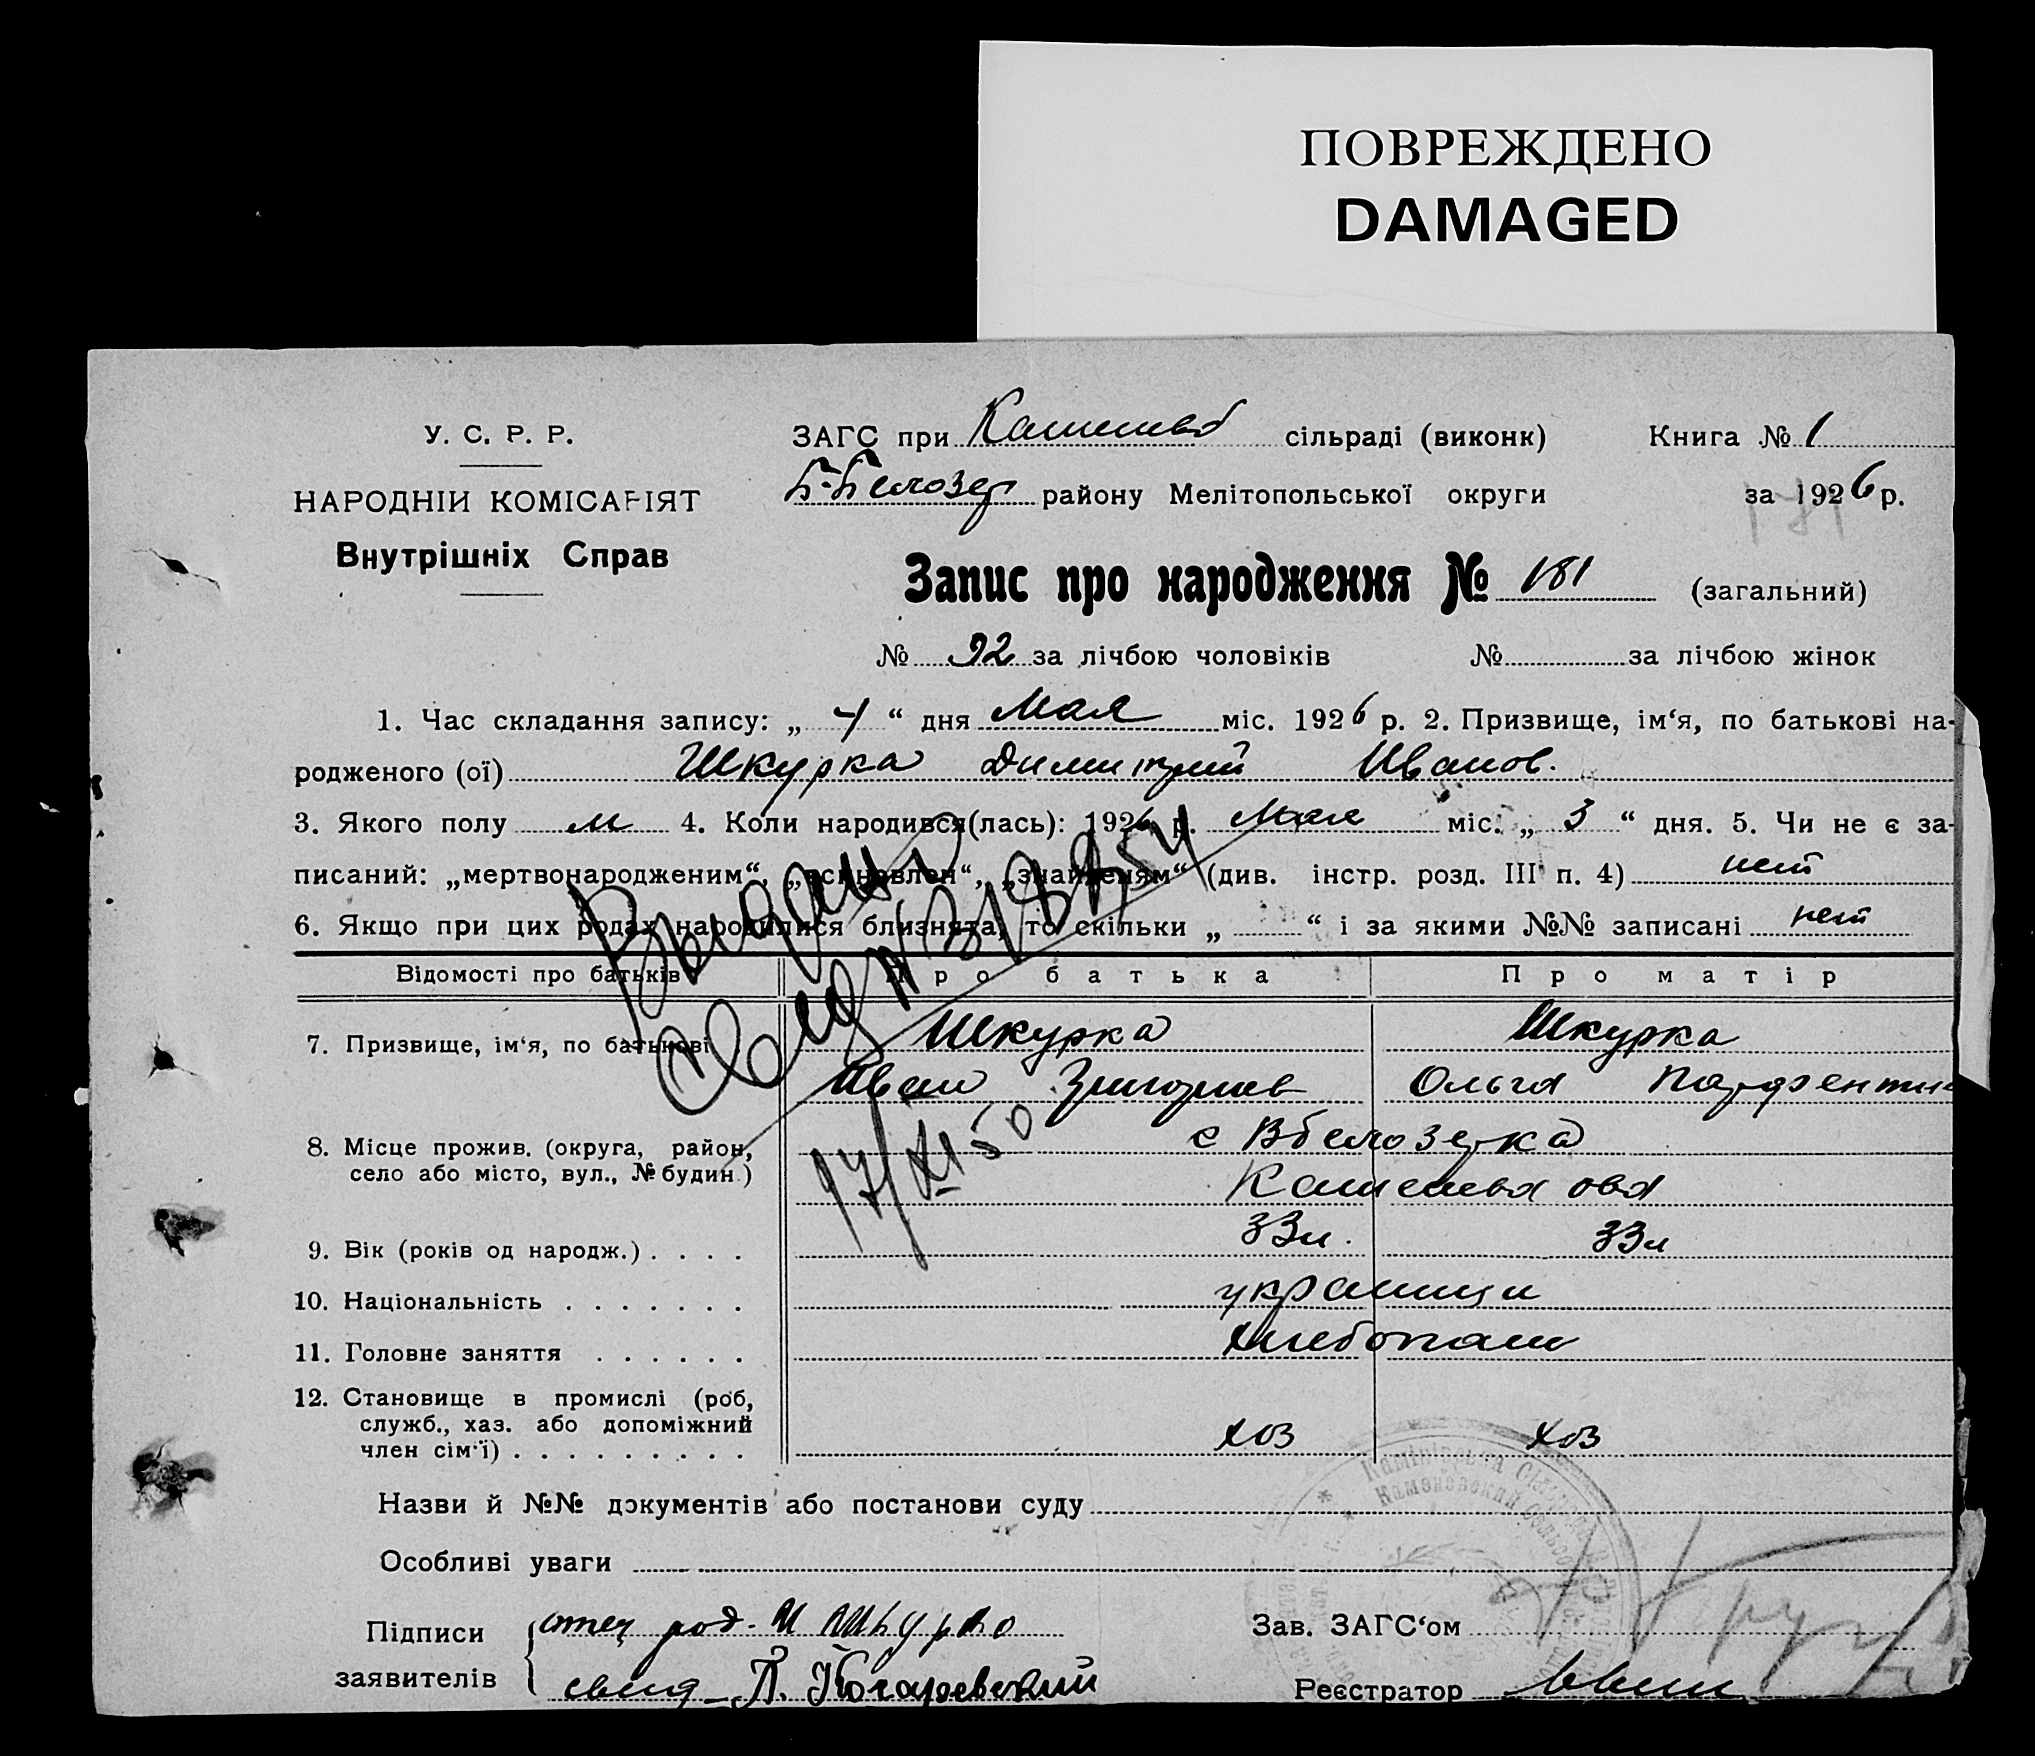 ПОВРЕЖДЕНО
DAMAGED
У. С. Р. Р.
НАРОДНІИ КОМІСАРІЯТ
Внутрішніх Справ
ЗАГС при сільраді (виконк) Книга № 1
Б-Белозер району Мелітопольської округи за 1926 р.
Запис про народження № 181 (загальний)
№ 92 за лічбою чоловіків № за лічбою жінок
1. Час складання запису: „ 4 “ дня Мая міс. 1926 р. 2. Призвище, ім‘я, по батькові на-
родженого (ої) Шкурка Димитрий Иванов.
3. Якого полу м 4. Коли народився(лась): 1926 р. Мая міс. „ 3 “ дня. 5. Чи не є за-
писаний: „мертвонародженим“, „всиновлен“, „знайденям“ (див. інстр. розд. III п. 4) нет
6. Якщо при цих родах народилися близнята, то скільки „ “ і за якими №№ записані нет
Выдано
Відомості про батьків Про батька Про матір
7. Призвище, ім‘я, по батькові Шкурка Шкурка
Иван Григориев Ольга
8. Місце прожив. (округа, район, село або місто, вул., № будин.) с Вбелозерка
17/XI 50
9. Вік (років од народж.) . . . . 33л. 33л
10. Національність . . . . . . . украинци
11. Головне заняття . . . . . . хлебопаш
12. Становище в промислі (роб,
служб., хаз. або допоміжний
член сім‘ї) . . . . . . . . . хоз хоз
Назви й №№ документів або постанови суду
Особливі уваги
Підписи отец род. И Шкурко Зав. ЗАГС‘ом
заявителів свид Реєстратор